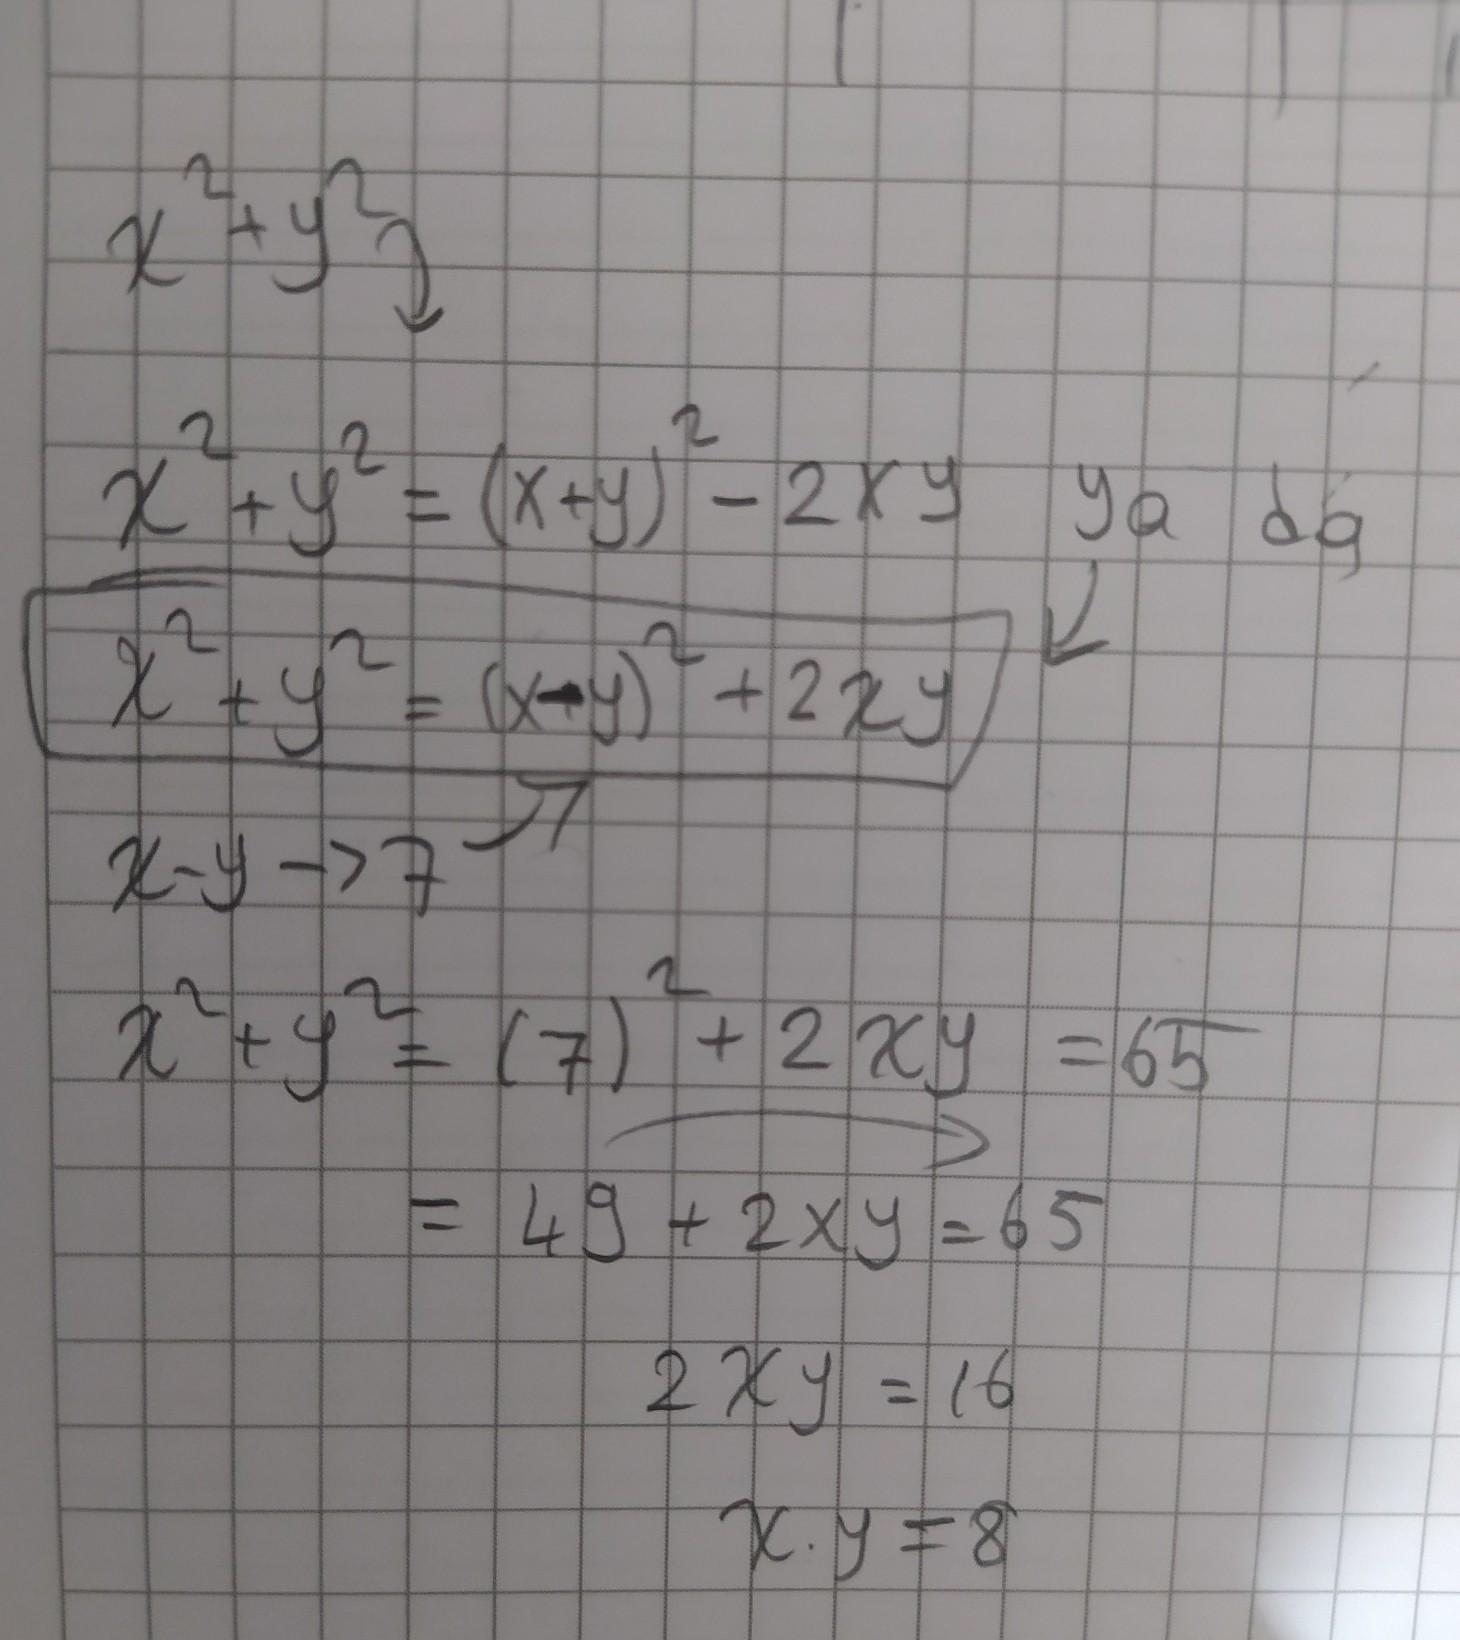 x²+y²
x²+y²=(x+y)²-2xy ya da
x²+y²=(x-y)²+2xy
x-y->7
x²+y²=(7)²+2xy=65
=49+2xy=65
2xy=16
x.y=8